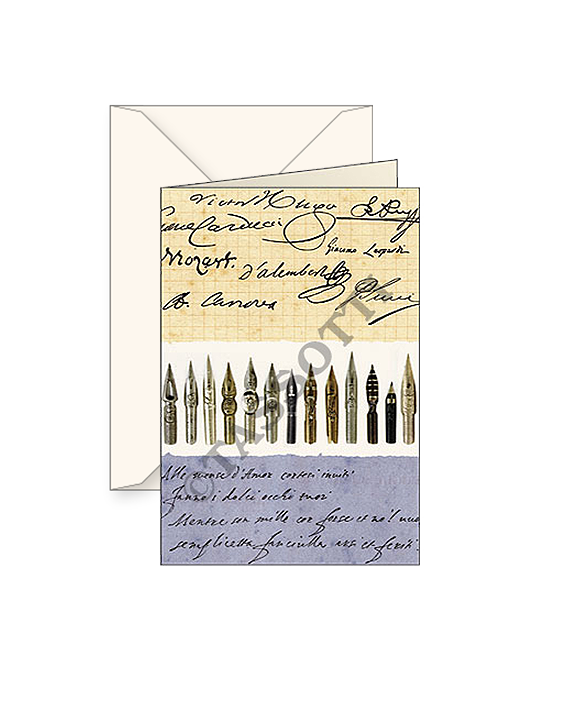 Victor Hugo
Carducci
Giacomo Leopardi
Mozart.
d'alembert
A. Canova
©TASSOTTI
Alle mense d'Amor cortesi inviti
fanno i dolci occhi tuoi
Mentre son mille cor forse et no'l
semplicetta fanciulla arsi et feriti